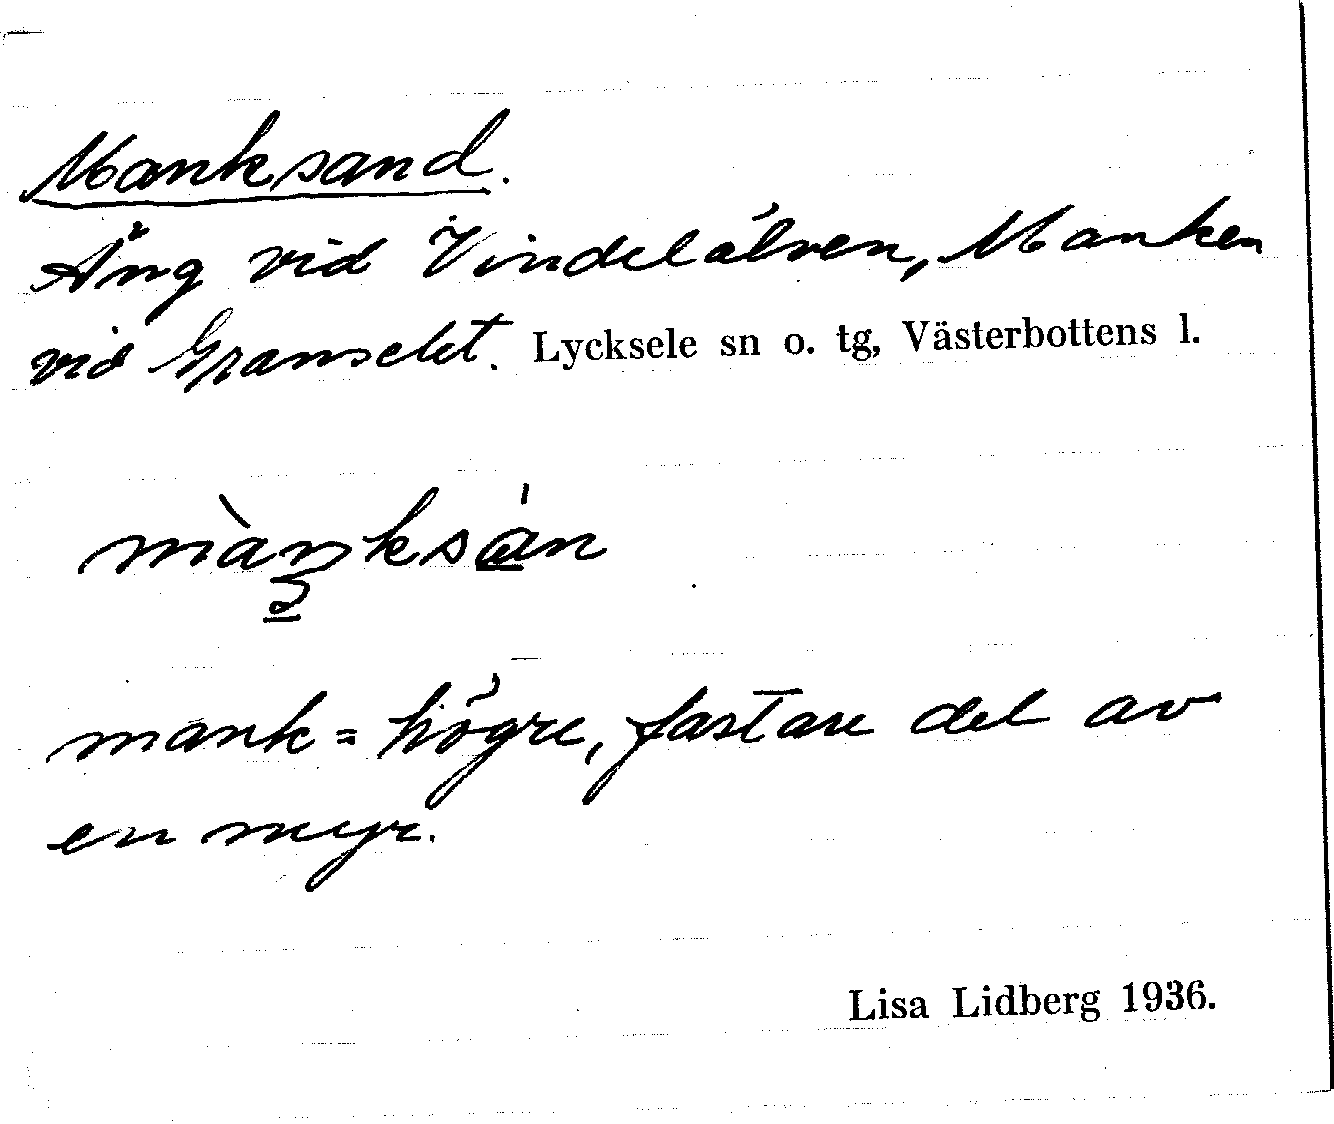 Manksand.
Äng vid Vindelälven, Manken
vid Granselet. Lycksele sn o. tg, Västerbottens l.
mànksàn
mank = högre, fastare del av
en myr.
Lisa Lidberg 1936.